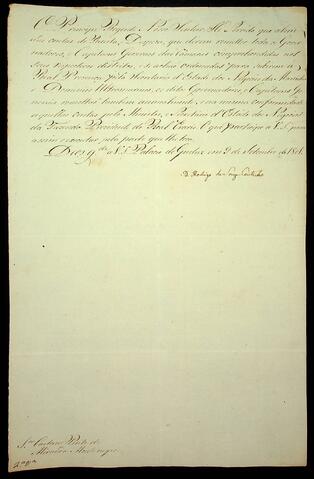 O Principe Regente Nosso Senhor He Servido que alem
das contas de Receita, e Despeza, que devem remetter todos os Gover-
nadores, e Capitaens Generaes das Colonias comprehendidas nos
seus respectivos districtos, e de as terem ordenadas para subirem á
Real Presença pela Secretaria d'Estado dos Negocios da Marinha
e Dominios Ultramarinos, os ditos Governadores, e Capitaens Ge-
neraes remettão tambem annualmente, e na mesma conformidade
aquellas contas pelo Ministro, e Secretario d'Estado dos Negocios
da Fazenda Presidente do Real Erario. O que participo a V. S. para
assim o executar pela parte que lhe toca.
Deos g.de a V. S. Palacio de Queluz em 2 de Setembro de 1801.
D. Rodrigo de Souza Coutinho
S.r Caetano Pinto de
Miranda Montenegro
2.ª via